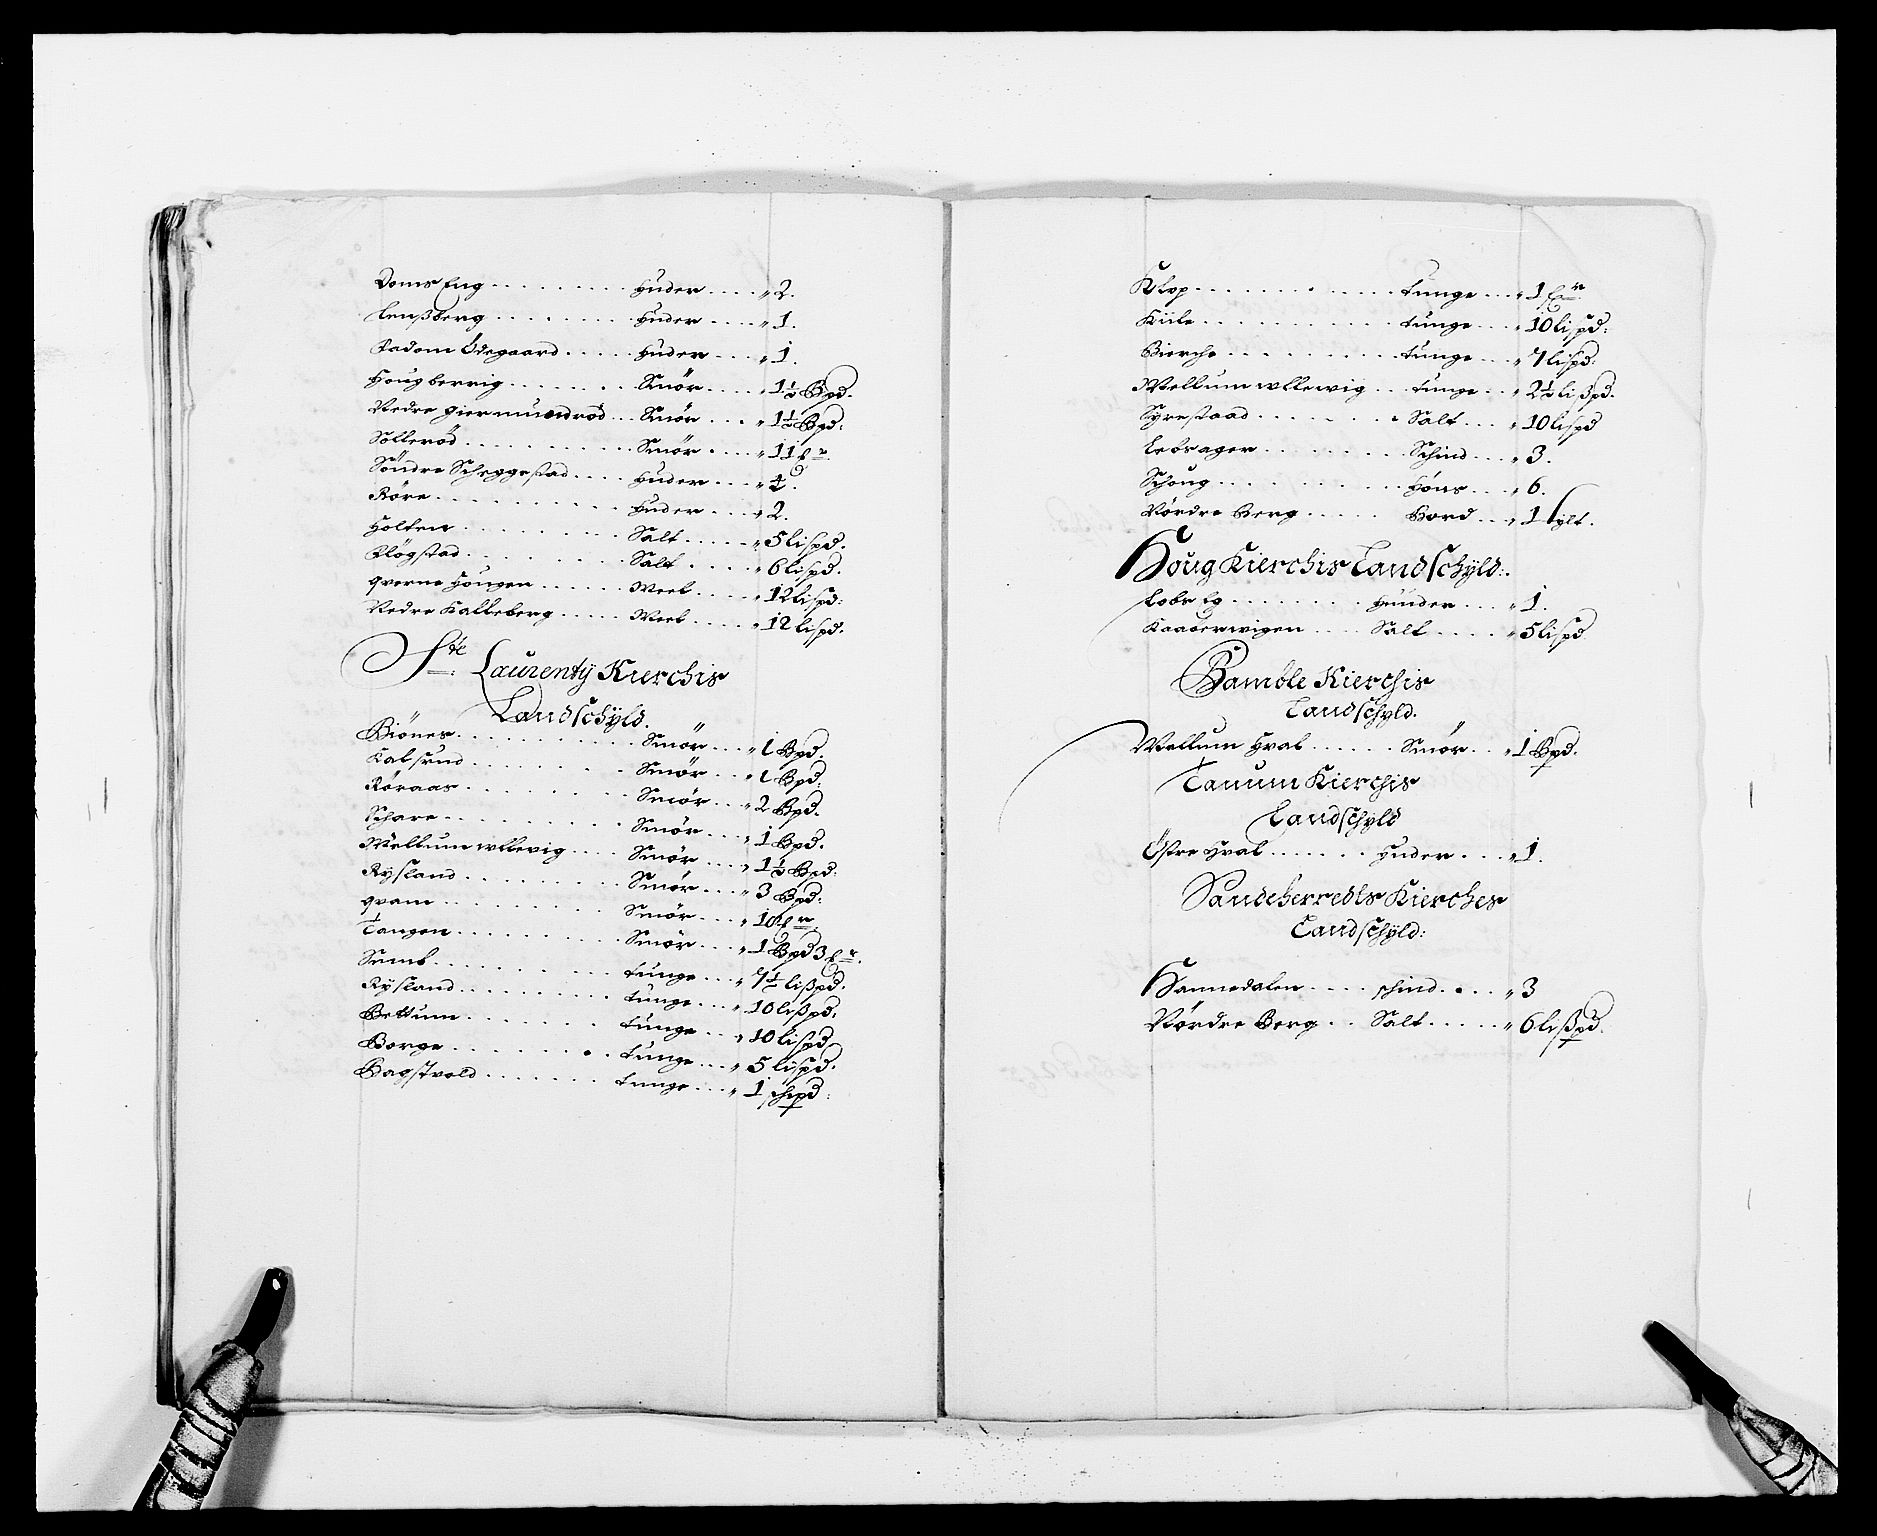 Doms Eng . . . . . . . . . Huder . . . . „ 2.
Lensßberg . . . . . . . . Huder . . . . „ 1.
Fadom Ödegaard . . . . . Huder . . . „ 1.
Hougberrig . . . . . . . Smör . . . . „ 1½ Bpd.
Nedre Giermundröd . . . Smör . . . „ 1½ Bpd:
Solleröd . . . . . . . . . . Smör . . . . „ 11
Söndre Scheggestad . . . . Huder . . . „ 4.
Röre . . . . . . . . . . . Huder . . . „ 2.
Holten . . . . . . . . . . Salt . . . . . „ 5 lispd.
Klögstad . . . . . . . . . Salt . . . . . „ 6 lispd.
qverne Hougen . . . . . . Meel . . . . „ 12 lispd:
Nedre Kalleberg . . . . . Meel . . . . „ 12 lispd.
Ste. Laurentÿ Kierchis
Landschÿld.
Biönes . . . . . . . . . . Smör . . . „ 1 Bpd.
Kalsund . . . . . . . . . Smör . . . „ 1 Bpd:
Röraas . . . . . . . . . . Smör . . . „ 2 Bpd.
Schare . . . . . . . . . . Smör . . . „ 1 Bpd.
Mellum wllevig . . . . Smör . . . . „ 1½ Bpd:
Rÿsland . . . . . . . . . Smör . . . . „ 3 Bpd:
qvam . . . . . . . . . . . Smör . . . . „ 10
Tangen . . . . . . . . . . Smör . . . . „ 1 Bpd 3
Sumb . . . . . . . . . . . tunge . . . „ 7½ lißpd.
Rÿsland . . . . . . . . . tunge . . . „ 10 lißpd.
Bettum . . . . . . . . . tunge . . . „ 10 lispd
Borge . . . . . . . . . . tunge . . . „ 5 lispd.
Bagstvold . . . . . . . tunge . . . „ 1 schpd:
Klop . . . . . . . . . . . tunge . . . „ 1
Kiile . . . . . . . . . . . tunge . . . „ 10 lispd:
Bierche . . . . . . . . . tunge . . . „ 7 lispd:
Mellum wllewig . . . tunge . . . „ 2½ lißpd.
Syrestaad . . . . . . . . Salt . . . „ 10 lispd
Leosager . . . . . . . . . Schind . . . „ 3.
Schoug . . . . . . . . . . Höns . . . „ 6.
Nördre Berg . . . . . Bord . . . „ 1 tylt.
Houg Kierchis Landschÿld:.
Lobs Eg . . . . . . . . Hunder . . . „ 1.
Kaaserwigen . . . . Salt . . . . . „ 5 lispd
Bamble Kierchis
Landschÿld.
Mellum Hval . . . . . . Smör . . . „ 1 Bpd.
Tanum Kierchis
Landschÿld
Östre Hval . . . . . . . Huder . . . „ 1.
Sandeherredts Kierches
Landschÿld:
Hannedalen . . . . schind . . . „ 3
Nördre Berg . . Salt . . . . . „ 6 lißpd.